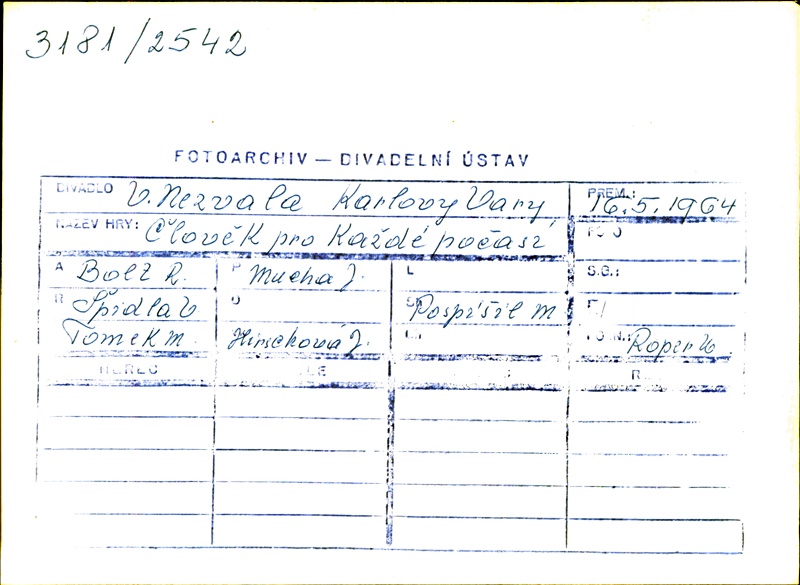 3181/2542
FOTOARCHIV — DIVADELNÍ ÚSTAV
DIVADLO V. Nezvala Karlovy Vary PREM.: 16.5.1964
NÁZEV HRY: Člověk pro každé počasí
A Bolt R. P Mucha J. L S.G.:
R Špidla V Pospíšil M
Tomek M. Hirschová J.
HEREC